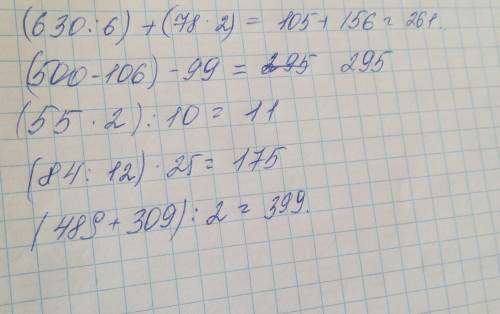 (630:6) + (78·2) = 105 + 156 = 261.
(500-106) - 99 = 295 295
(55·2):10 = 11
(84:12)·25 = 175
(489+309):2 = 399.